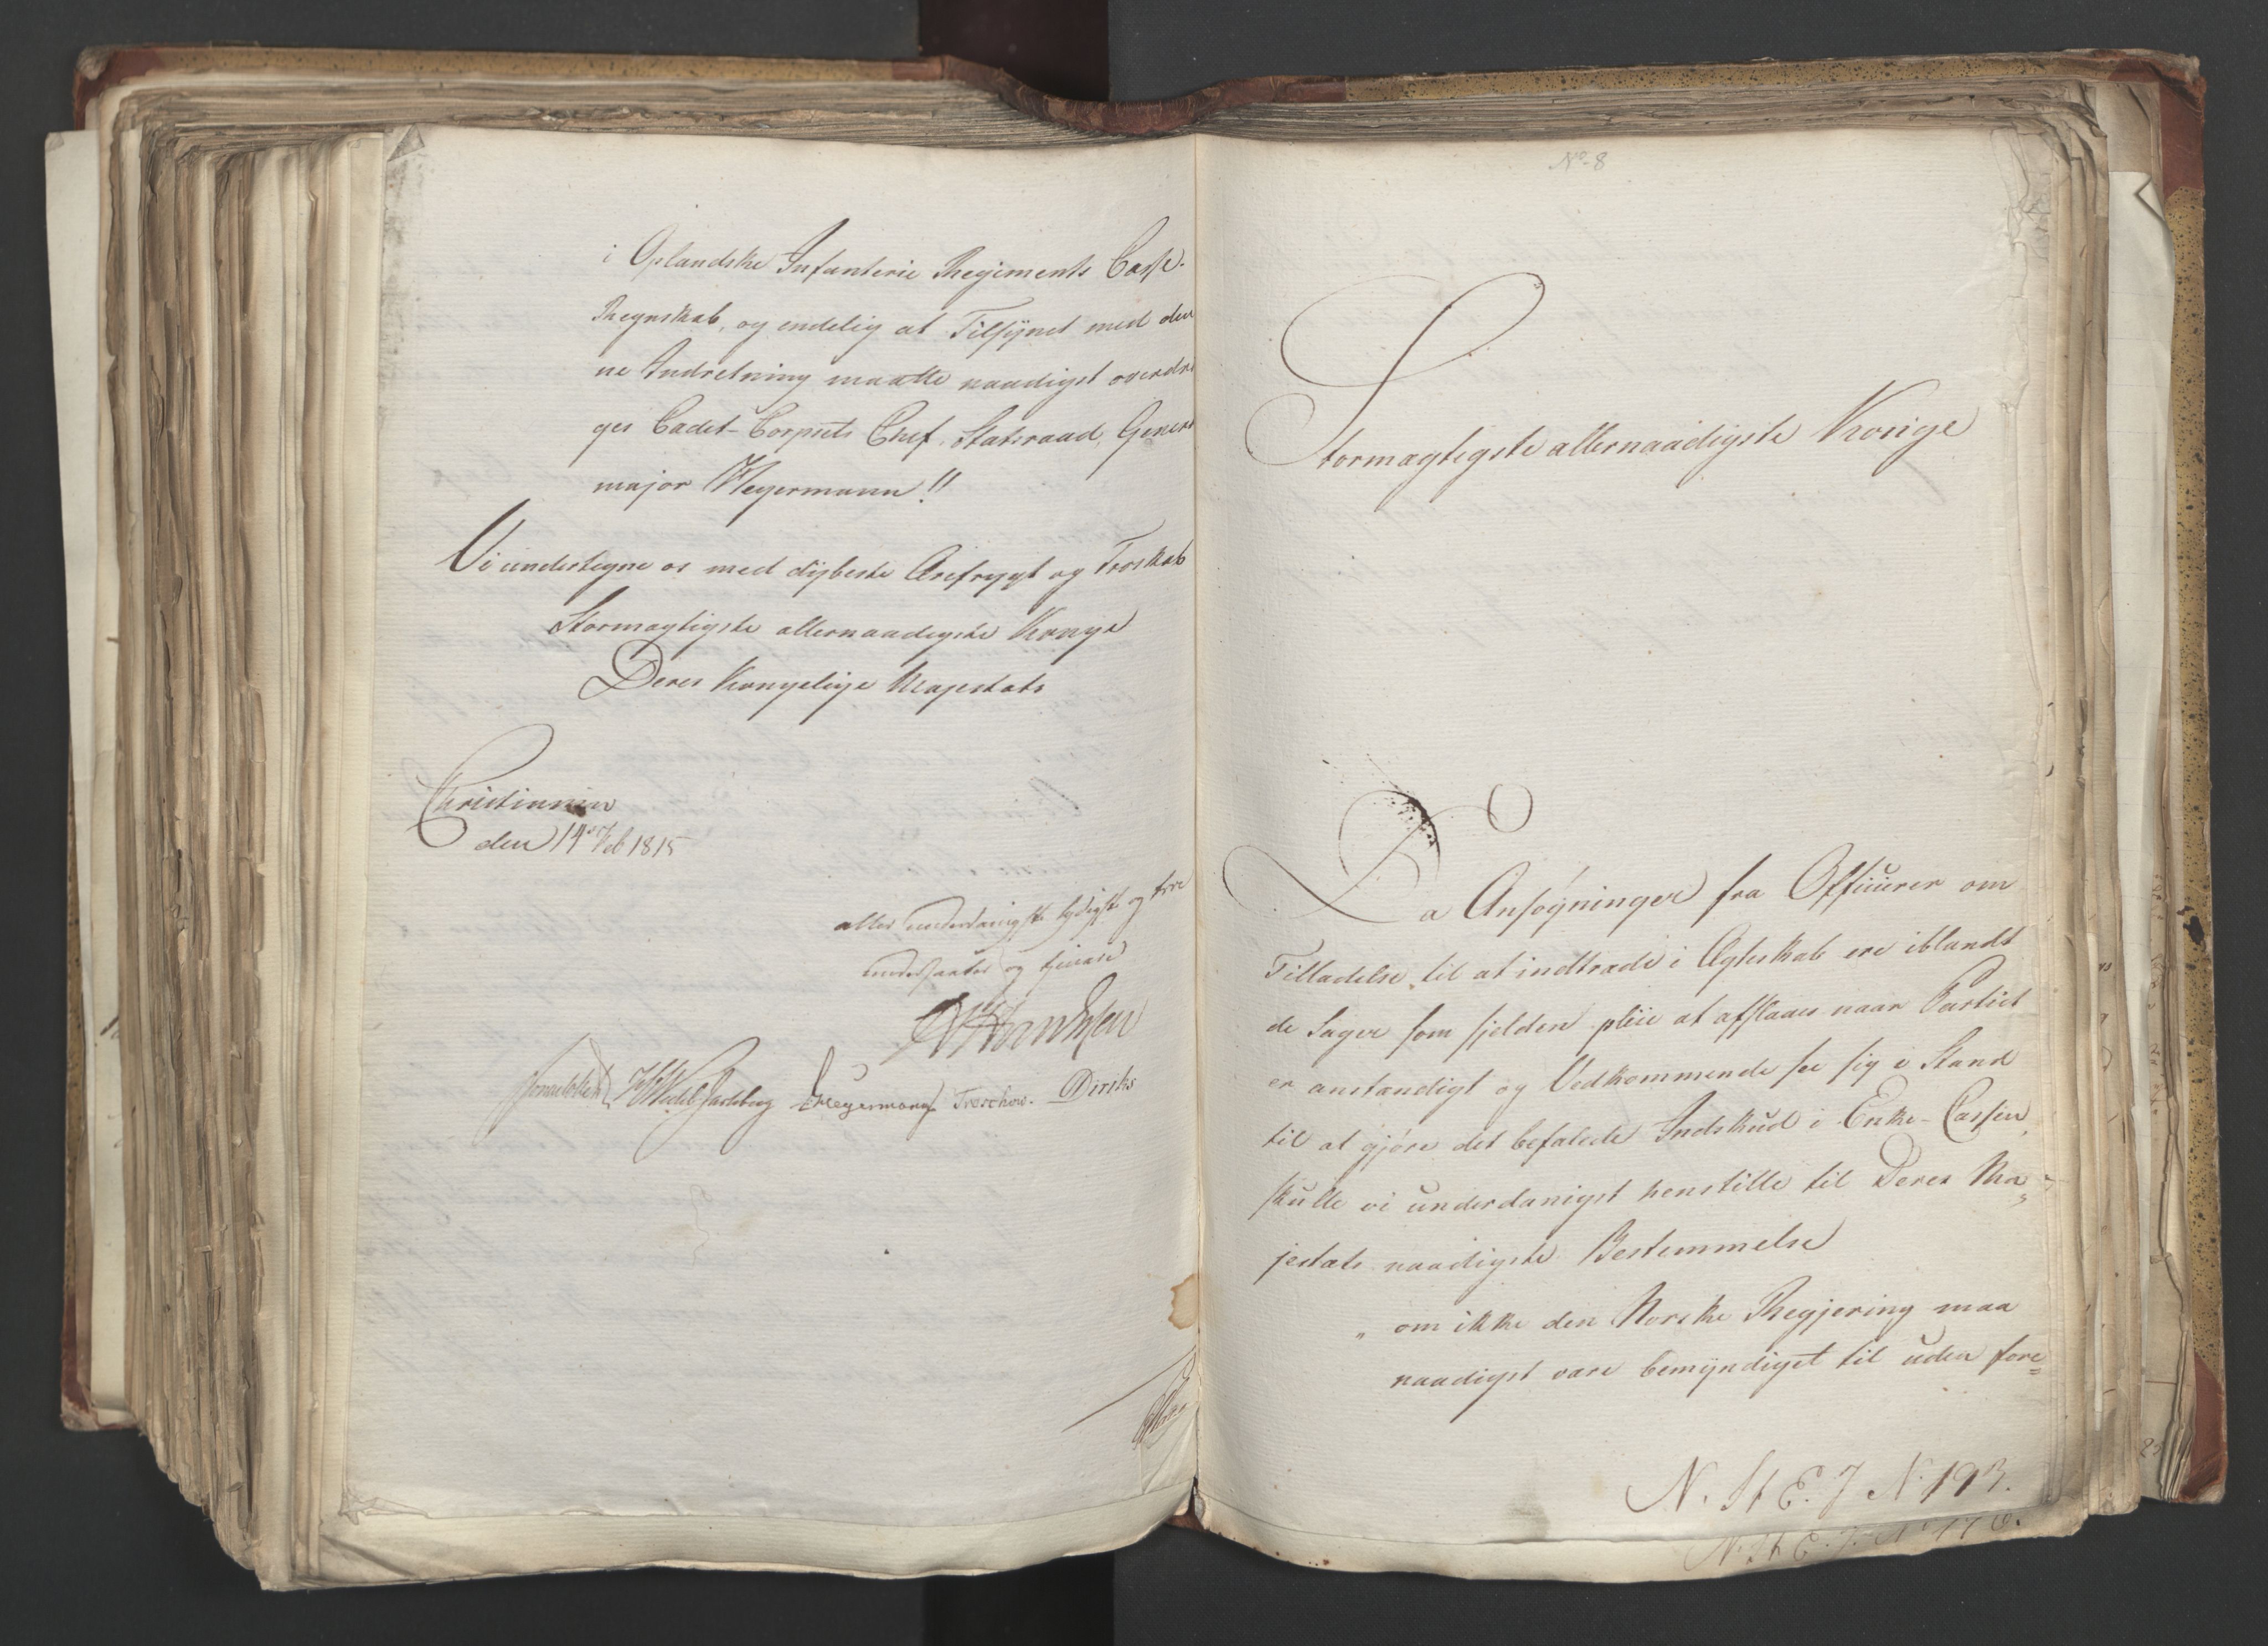 i Oplandske Infanterie Regiments Casse-
Regnskab, og endelig at Tilsynet med den
ne Indretning maatte naadigst overdra
ges Cadet-Corpsets Chef, Statsraad, General
major Hegermann!!
Vi undertegne os med dybeste Ærefrygt og Troskab
Stormægtigste allernaadigste Konge
Deres Kongelige Majestæts
Christiania
den 14de Feb 1815
aller underdanigste lydigste og troe
undersaater og tienere
Sommerfeldt HWedel Jarlsberg Hegermann Treschow. Diriks
No. 8
Stormægtigste allernaadigste Konge
Da Ansøgninger fra Officierer om
Tilladelse til at indtræde i Ægteskab ere iblandt
de Sager som sjelden pleie at afslaaes naar Partiet
er anstændigt og Vedkommende see sig i Stand
til at gjøre det befalede Indskud i Enke-Cassen,
skulle vi underdanigst henstille til Deres Ma„
jestæts naadigste Bestemmelse
„ om ikke den Norske Regjering maa
naadigst være bemyndiget til uden fore=
N. St E. J N. 193.
N. St E. J. N 176.